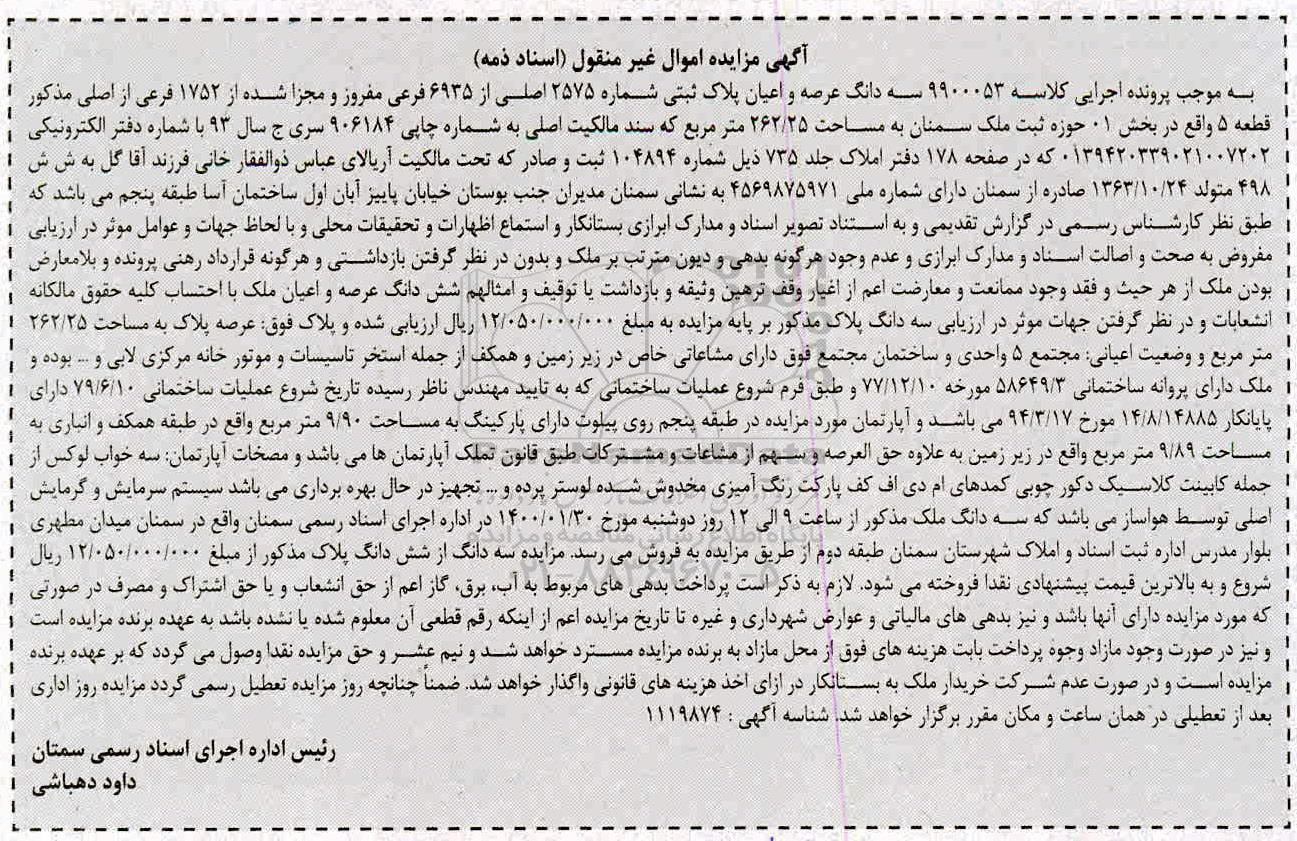 آگهی مزایده اموال غیر منقول (اسناد ذمه)
به موجب پرونده اجرایی کلاسه ۹۹۰۰۰۵۳ سه دانگ عرصه و اعیان پلاک ثبتی شماره ۲۵۷۵ اصلی از ۶۹۳۵ فرعی مفروز و مجزا شده از ۱۷۵۲ فرعی از اصلی مذکور
قطعه ۵ واقع در بخش ۰۱ حوزه ثبت ملک سمنان به مساحت ۲۶۲/۲۵ متر مربع که سند مالکیت اصلی به شماره چاپی ۹۰۶۱۸۴ سری ج سال ۹۳ با شماره دفتر الکترونیکی
۰۱۳۹۴۲۰۳۳۹۰۲۱۰۰۷۲۰۲ که در صفحه ۱۷۸ دفتر املاک جلد ۷۳۵ ذیل شماره ۱۰۴۸۹۴ ثبت و صادر که تحت مالکیت آریالای عباس ذوالفقار خانی فرزند آقا گل به ش ش
۴۹۸ متولد ۱۳۶۳/۱۰/۲۴ صادره از سمنان دارای شماره ملی ۴۵۶۹۸۷۵۹۷۱ به نشانی سمنان مدیران جنب بوستان خیابان پاییز آبان اول ساختمان آسا طبقه پنجم می باشد که
طبق نظر کارشناس رسمی در گزارش تقدیمی و به استناد تصویر اسناد و مدارک ابرازی بستانکار و استماع اظهارات و تحقیقات محلی و با لحاظ جهات و عوامل موثر در ارزیابی
مفروض به صحت و اصالت اسناد و مدارک ابرازی و عدم وجود هرگونه بدهی و دیون مترتب بر ملک و بدون در نظر گرفتن بازداشتی و هرگونه قرارداد رهنی پرونده و بلامعارض
بودن ملک از هر حیث و فقد وجود ممانعت و معارضت اعم از اغیار وقف ترهین وثیقه و بازداشت یا توقیف و امثالهم شش دانگ عرصه و اعیان ملک با احتساب کلیه حقوق مالکانه
انشعابات و در نظر گرفتن جهات موثر در ارزیابی سه دانگ پلاک مذکور بر پایه مزایده به مبلغ ۱۲/۰۵۰/۰۰۰/۰۰۰ ریال ارزیابی شده و پلاک فوق: عرصه پلاک به مساحت ۲۶۲/۲۵
متر مربع و وضعیت اعیانی: مجتمع ۵ واحدی و ساختمان مجتمع فوق دارای مشاعاتی خاص در زیر زمین و همکف از جمله استخر تاسیسات و موتور خانه مرکزی لابی و ... بوده و
ملک دارای پروانه ساختمانی ۵۸۶۴۹/۳ مورخه ۷۷/۱۲/۱۰ و طبق فرم شروع عملیات ساختمانی که به تایید مهندس ناظر رسیده تاریخ شروع عملیات ساختمانی ۷۹/۶/۱۰ دارای
پایانکار ۱۴/۸/۱۴۸۸۵ مورخ ۹۴/۳/۱۷ می باشد و آپارتمان مورد مزایده در طبقه پنجم روی پیلوت دارای پارکینگ به مساحت ۹/۹۰ متر مربع واقع در طبقه همکف و انباری به
مساحت ۹/۸۹ متر مربع واقع در زیر زمین به علاوه حق العرصه و سهم از مشاعات و مشترکات طبق قانون تملک آپارتمان ها می باشد و مصخات آپارتمان: سه خواب لوکس از
جمله کابینت کلاسیک دکور چوبی کمدهای ام دی اف کف پارکت رنگ آمیزی مخدوش شده لوستر پرده و ... تجهیز در حال بهره برداری می باشد سیستم سرمایش و گرمایش
اصلی توسط هواساز می باشد که سه دانگ ملک مذکور از ساعت ۹ الی ۱۲ روز دوشنبه مورخ ۱۴۰۰/۰۱/۳۰ در اداره اجرای اسناد رسمی سمنان واقع در سمنان میدان مطهری
بلوار مدرس اداره ثبت اسناد و املاک شهرستان سمنان طبقه دوم از طریق مزایده به فروش می رسد. مزایده سه دانگ از شش دانگ پلاک مذکور از مبلغ ۱۲/۰۵۰/۰۰۰/۰۰۰ ریال
شروع و به بالاترین قیمت پیشنهادی نقدا فروخته می شود. لازم به ذکر است پرداخت بدهی های مربوط به آب، برق، گاز اعم از حق انشعاب و یا حق اشتراک و مصرف در صورتی
که مورد مزایده دارای آنها باشد و نیز بدهی های مالیاتی و عوارض شهرداری و غیره تا تاریخ مزایده اعم از اینکه رقم قطعی آن معلوم شده یا نشده باشد به عهده برنده مزایده است
و نیز در صورت وجود مازاد وجوه پرداخت بابت هزینه های فوق از محل مازاد به برنده مزایده مسترد خواهد شد و نیم عشر و حق مزایده نقدا وصول می گردد که بر عهده برنده
مزایده است و در صورت عدم شرکت خریدار ملک به بستانکار در ازای اخذ هزینه های قانونی واگذار خواهد شد. ضمناً چنانچه روز مزایده تعطیل رسمی گردد مزایده روز اداری
بعد از تعطیلی در همان ساعت و مکان مقرر برگزار خواهد شد. شناسه آگهی : ۱۱۱۹۸۷۴
رئیس اداره اجرای اسناد رسمی سمتان
داود دهباشی